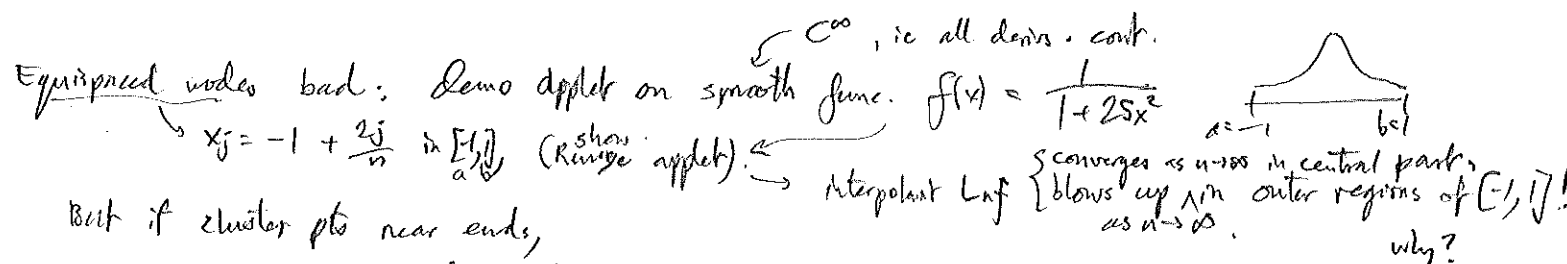 C^∞, ie all derivs. cont.
Equispaced nodes bad: Demo applet on smooth func. f(x) = 1/(1+25x²)
a=-1 b=1
x_j = -1 + 2j/n in [-1,1], (show Runge applet).
a b
interpolant L_n f { converges as n→∞ in central part,
blows up in outer regions of [-1,1]!
as n→∞.
But if cluster pts near ends,
why?